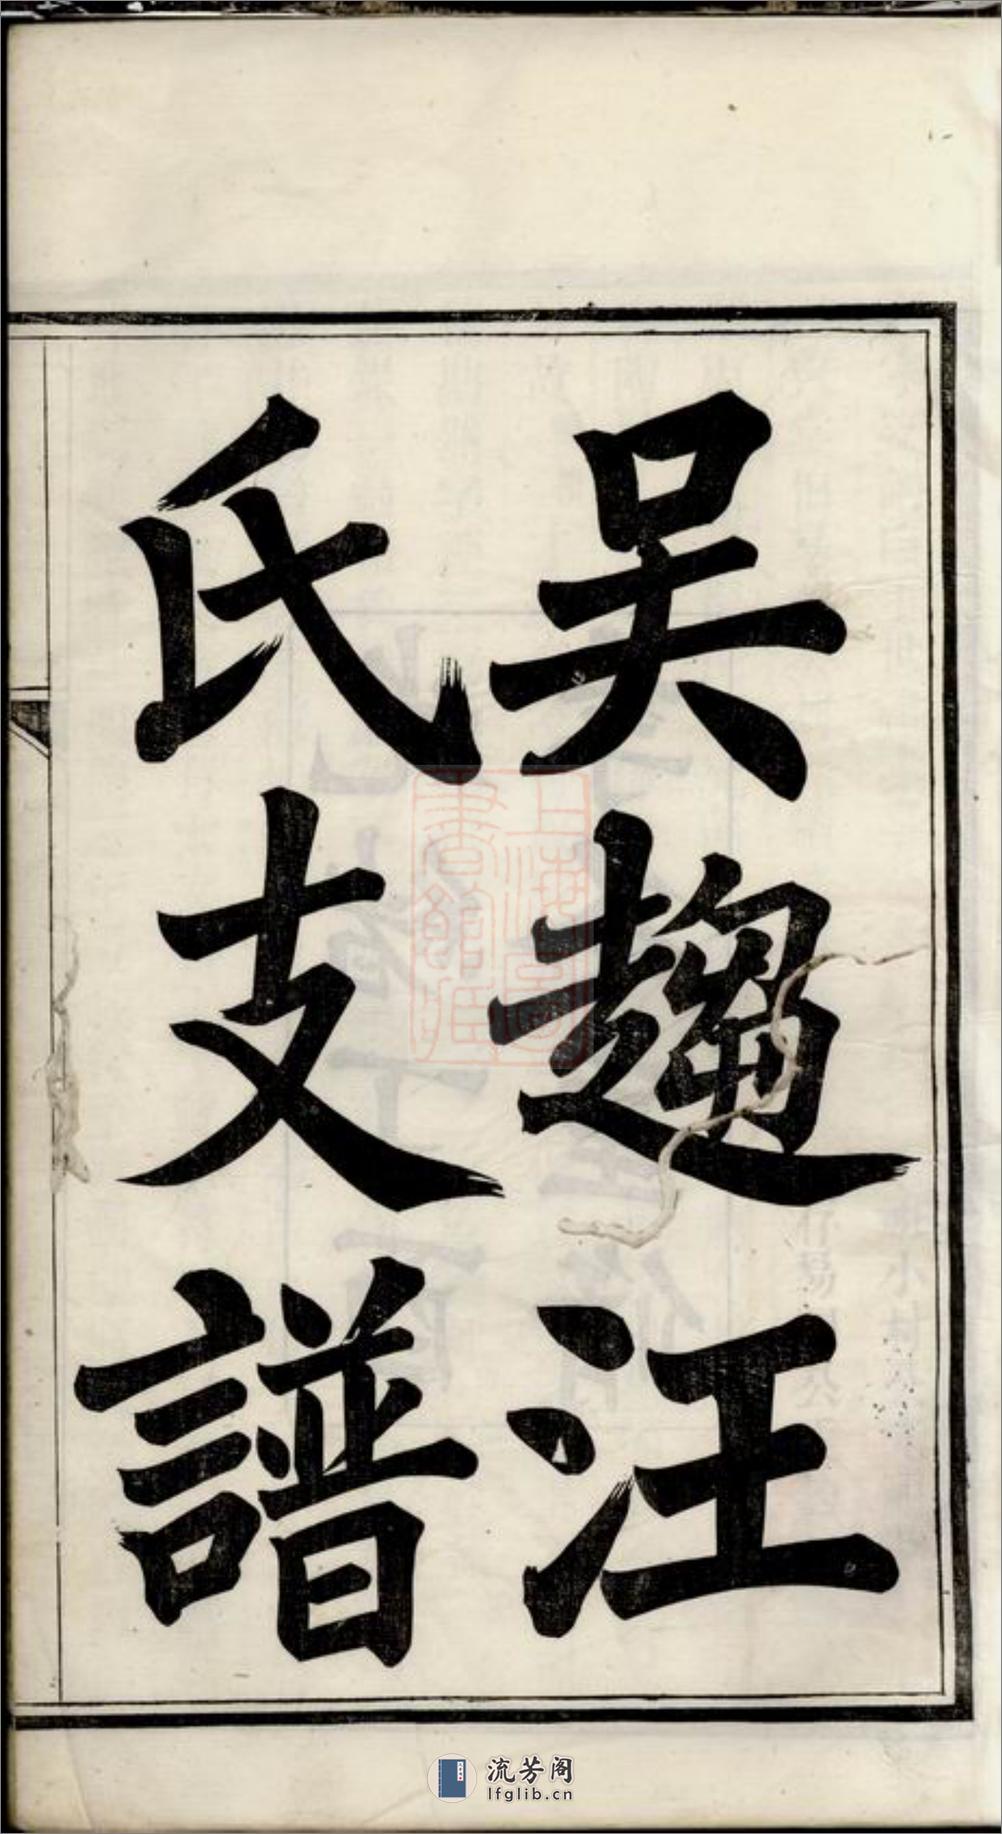 吳趨汪
氏支譜
上海圖
書館藏
流芳阁
lfglib.cn